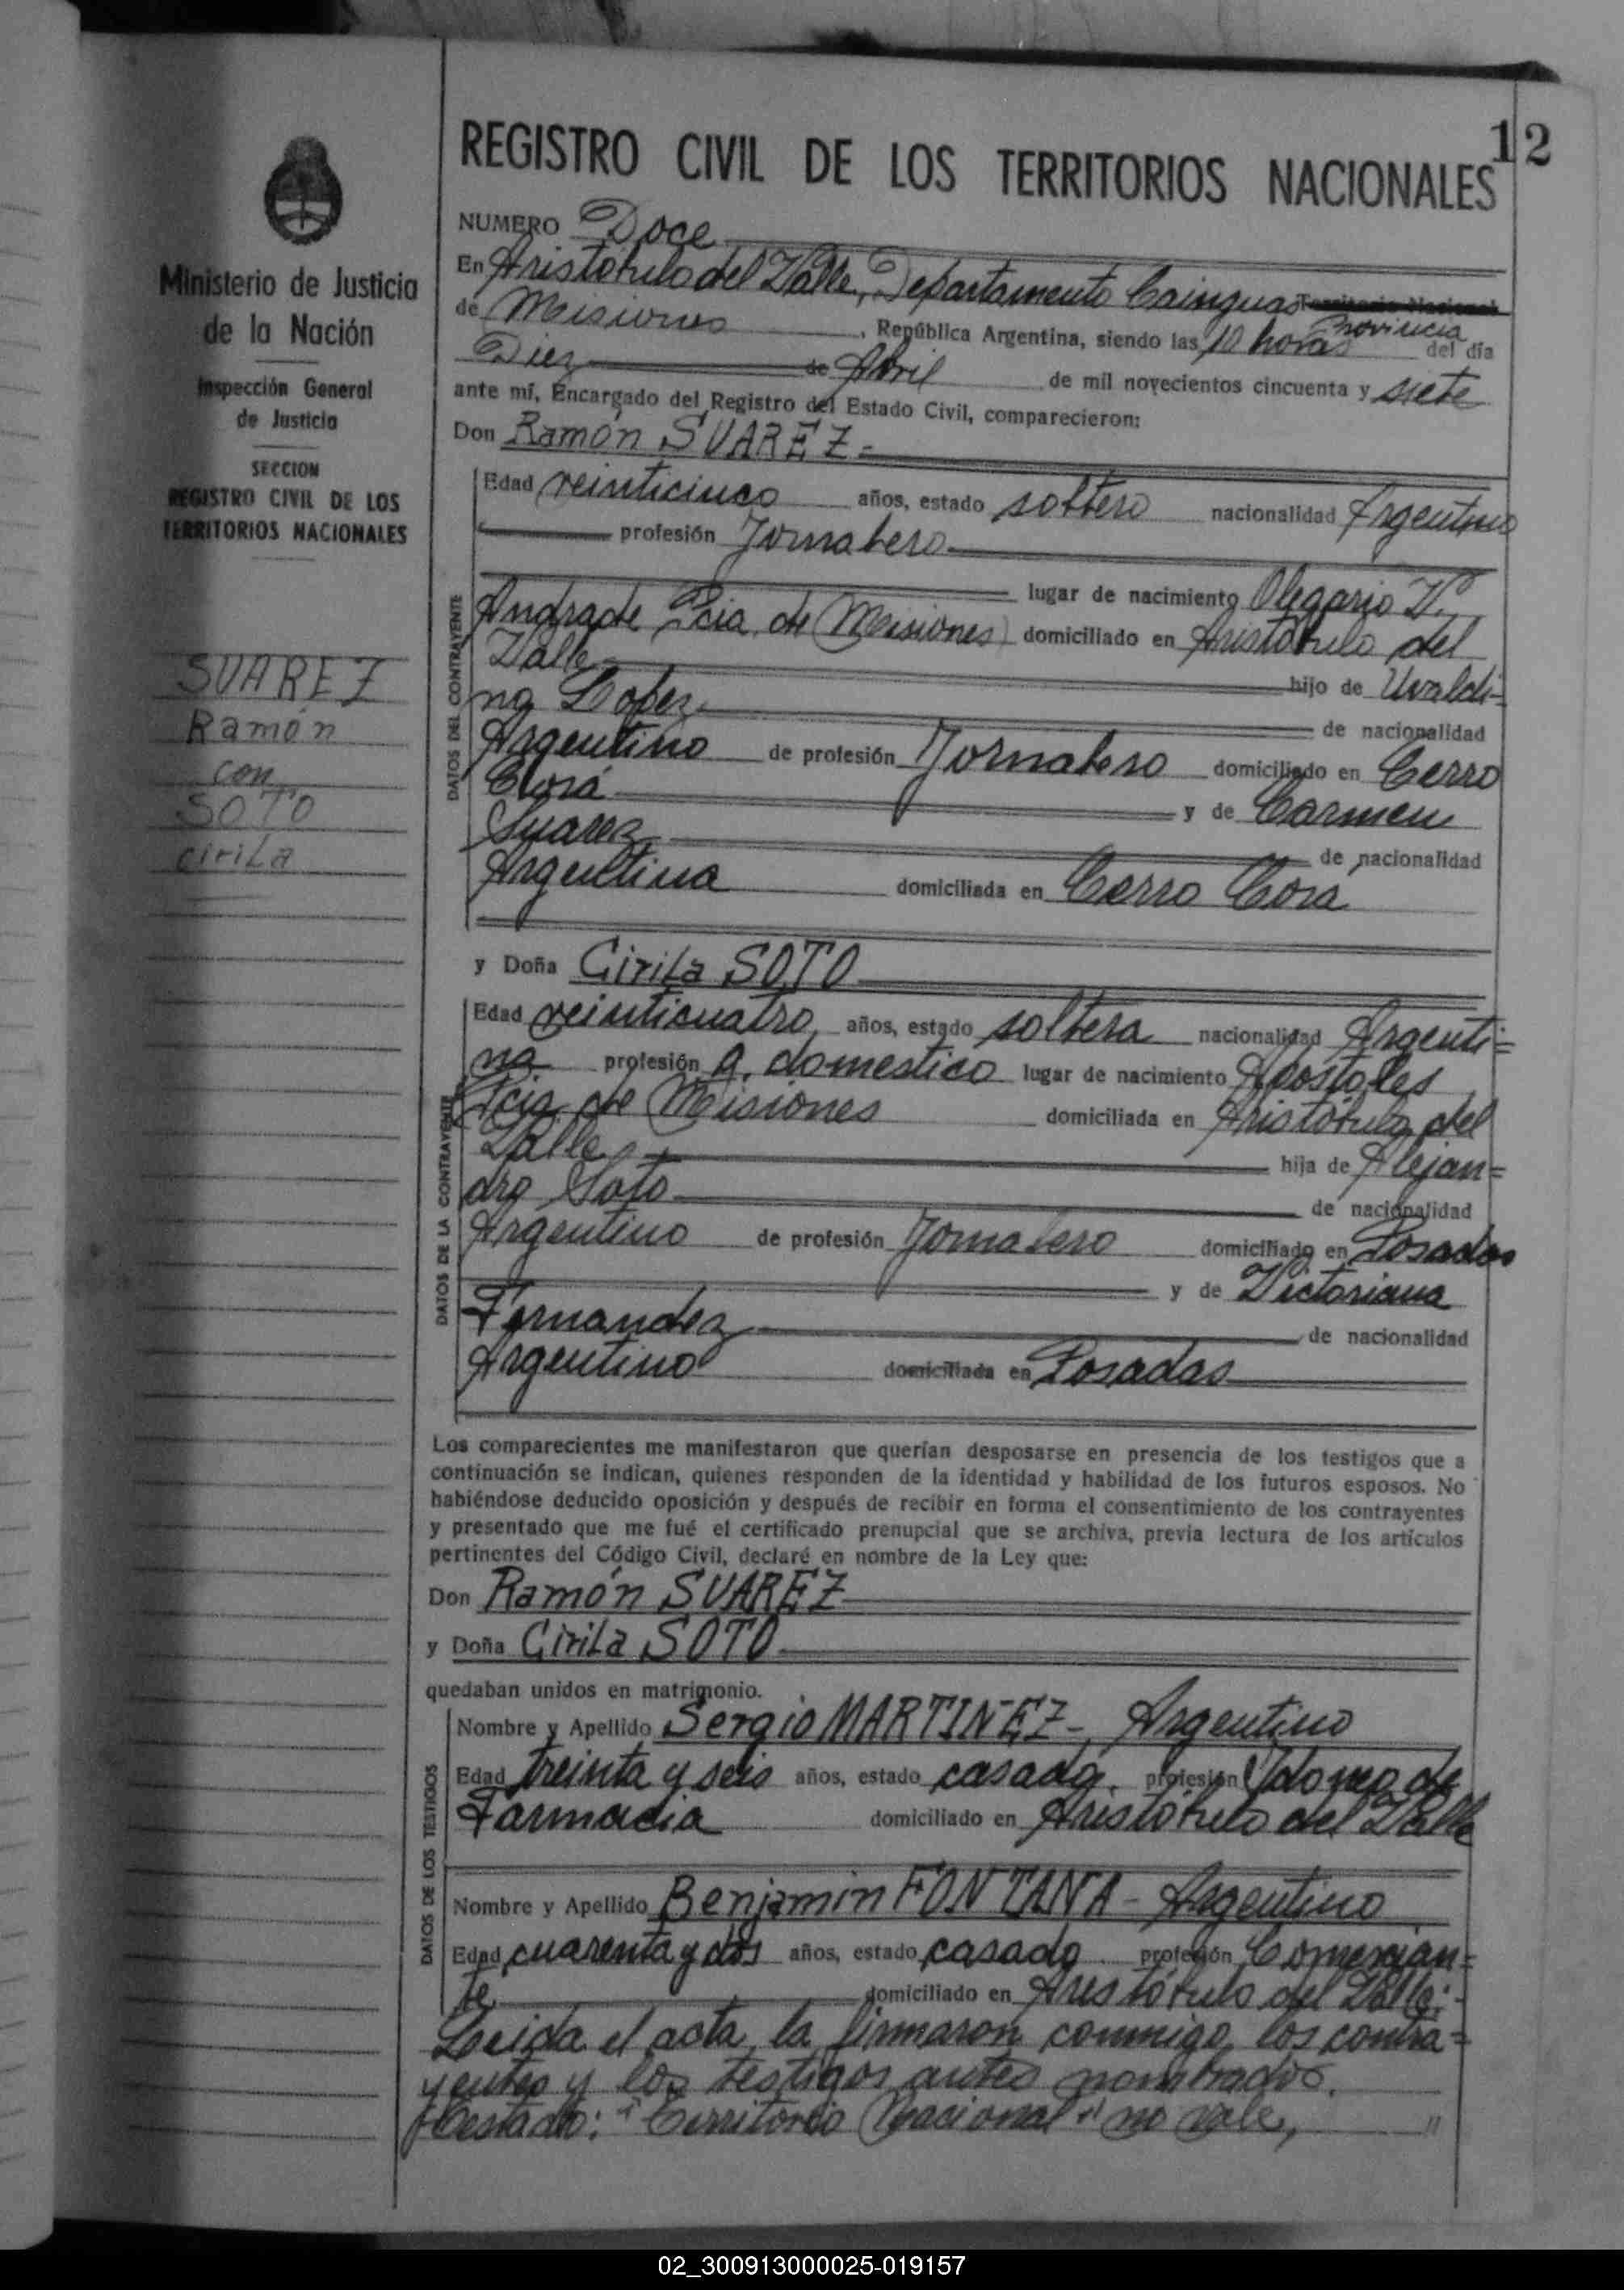 12
REGISTRO CIVIL DE LOS TERRITORIOS NACIONALES
Ministerio de Justicia
de la Nación
Inspección General
de Justicia
SECCION
REGISTRO CIVIL DE LOS
TERRITORIOS NACIONALES
SUAREZ
Ramón
con
SOTO
CiriLa
NUMERO Doce
En Aristobulo del Valle, Departamento Cainguas Territorio Nacional
Provincia
de Misiones, República Argentina, siendo las 10 horas del día
Diez de Abril de mil novecientos cincuenta y siete
ante mí, Encargado del Registro del Estado Civil, comparecieron:
Don Ramón SUAREZ
DATOS DEL CONTRAYENTE
Edad veinticinco años, estado soltero nacionalidad Argentino
profesión Jornalero
lugar de nacimiento Olegario V.
Andrade Pcia. de Misiones domiciliado en Aristóbulo del
Valle hijo de Uvaldi-
no Lopez de nacionalidad
Argentino de profesión Jornalero domiciliado en Cerro
Corá y de Carmen
Suarez de nacionalidad
Argentina domiciliada en Cerro Cora
y Doña CiriLa SOTO
DATOS DE LA CONTRAYENTE
Edad veinticuatro años, estado soltera nacionalidad Argenti=
na profesión q. domestico lugar de nacimiento Apostoles
Pcia de Misiones domiciliada en Aristóbulo del
Valle hija de Alejan=
dro Soto de nacionalidad
Argentino de profesión Jornalero domiciliado en Posadas
y de Victoriana
Fernandez de nacionalidad
Argentino domiciliada en Posadas
Los comparecientes me manifestaron que querían desposarse en presencia de los testigos que a
continuación se indican, quienes responden de la identidad y habilidad de los futuros esposos. No
habiéndose deducido oposición y después de recibir en forma el consentimiento de los contrayentes
y presentado que me fué el certificado prenupcial que se archiva, previa lectura de los artículos
pertinentes del Código Civil, declaré en nombre de la Ley que:
Don Ramón SUAREZ
y Doña CiriLa SOTO
quedaban unidos en matrimonio.
DATOS DE LOS TESTIGOS
Nombre y Apellido Sergio MARTINEZ-, Argentino
Edad treinta y seis años, estado casado, profesión Idoneo de
Farmacia domiciliado en Aristóbulo del Valle
Nombre y Apellido Benjamin FONTANA - Argentino
Edad cuarenta y dos años, estado casado profesión Comercian=
te domiciliado en Aristóbulo del Valle.-
Leída el acta, la firmaron conmigo los contra=
yentes y los testigos antes nombrados.
Testado: "Territorio Nacional" no vale,
02_300913000025-019157